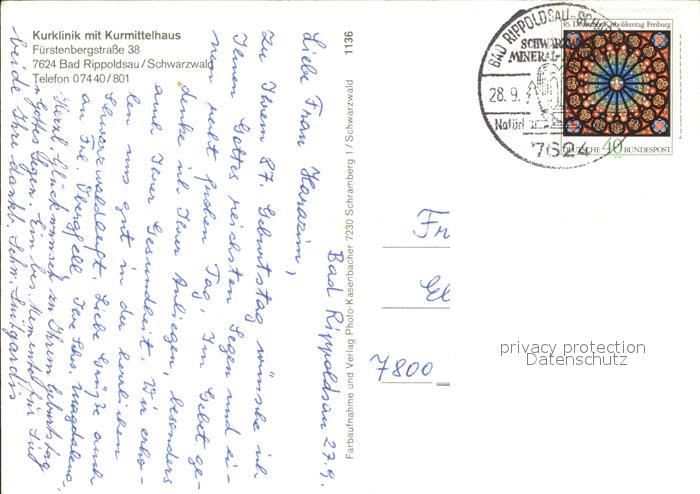 Kurklinik mit Kurmittelhaus
Fürstenbergstraße 38
7624 Bad Rippoldsau/Schwarzwald
Telefon 07440/801
1136
Farbaufnahme und Verlag Photo-Kasenbacher 7230 Schramberg 1/Schwarzwald
Bad Rippoldsau 27.9.
Liebe Frau
Zu Ihrem 87. Geburtstag wünsche ich
Ihnen Gottes reichsten Segen und ei-
nen recht frohen Tag. Im Gebet ge-
denke ich Ihrer Anliegen, besonders
auch Ihrer Gesundheit. Wir erho-
len uns gut in der herrlichen
Schwarzwaldluft. Liebe Grüße auch
an Frl. Ihre Schw. Magdalena,
Herzl. Glückwunsch zu Ihrem Geburtstag
u. Gottes Segen. Ein bes. Memento für Sie
beide Ihre dankb. Schw. Luitgardis
BAD RIPPOLDSAU-SCH
MINERAL-
28.9.
Natürl
7624
85. Deutscher Katholikentag Freiburg
DEUTSCHE 40 BUNDESPOST
Fr
El
7800
privacy protection
Datenschutz